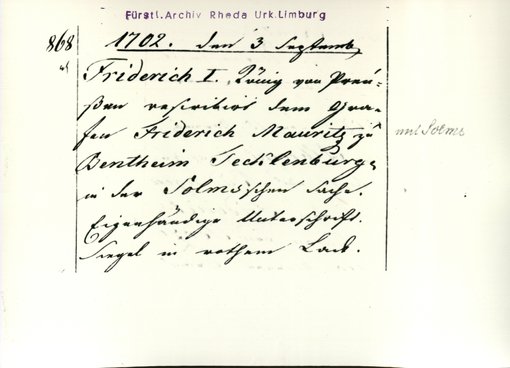 Fürstl. Archiv Rheda Urk. Limburg
868
1702. den 3 Septemb.
Friderich I. König von Preu-
ßen rescribirt dem Gra-
fen Friderich Mauritz zu
Bentheim Tecklenburg
in der Solmsschen Sache.
Eigenhändige Unterschrift.
Siegel in rothem Lack.
Solms